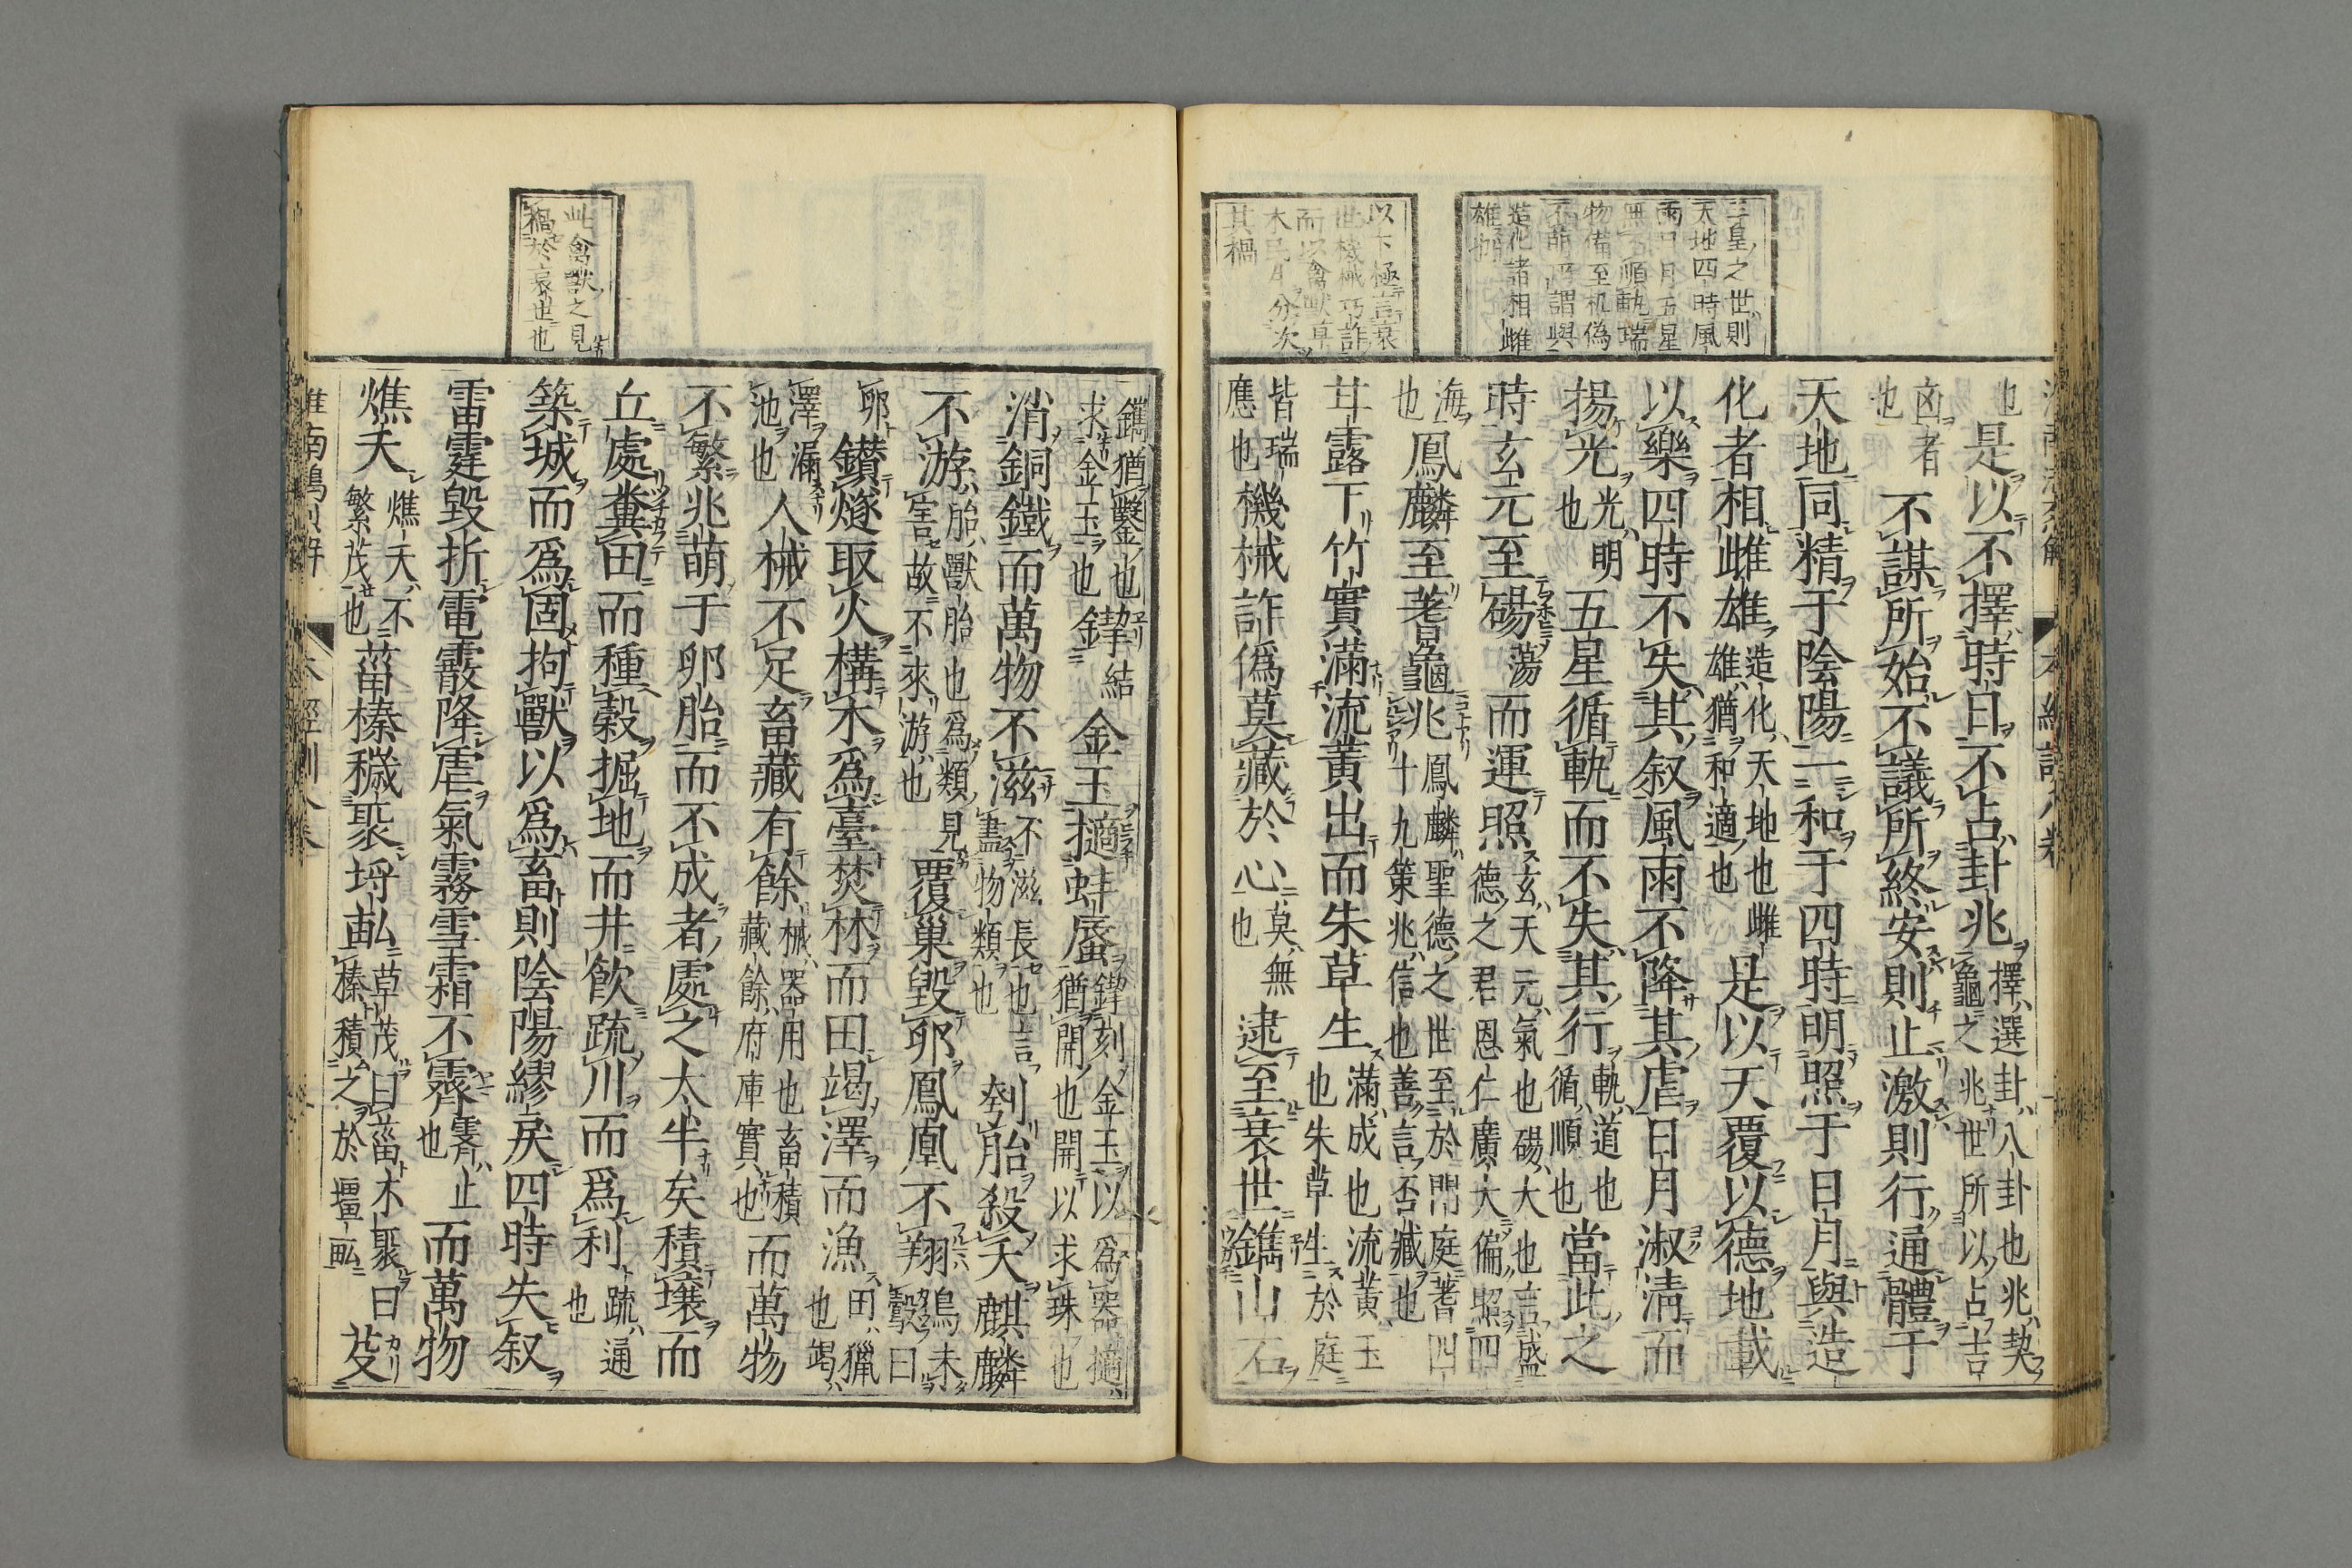 三皇之世則
天地四時風
雨日月五星
無不順軌瑞
物備至机偽
不萌所謂與
造化諸相雌
雄也
以下極言衰
世機械巧詐
而以禽獸草
木民生分次
其禍
也是以不擇時日不占卦兆擇選卦八卦也兆契
龜之兆世所以占吉
凶者
也不謀所始不議所終安則止激則行通體于
天地同精于陰陽一和于四時明照于日月與造
化者相雌雄造化天地也雌
雄猶和適也是以天覆以德地載
以樂四時不失其叙風雨不降其虐日月淑清而
揚光光明
也五星循軌而不失其行軌道也
循順也當此之
時玄元至碭蕩而運照玄天元氣也碭大也言盛
德之君恩仁廣大徧照四
海
也鳳麟至蓍龜兆鳳麟聖德之世至於門庭蓍四
十九策兆信也善言否臧也
甘露下竹實滿流黃出而朱草生滿成也流黃玉
也朱草生於庭
皆瑞
應也機械詐偽莫藏於心莫無
也逮至衰世鐫山石
此禽獸之見
禍於衰世也
鐫猶鑿也
求金玉也鍥結金玉擿蚌蜃鍥刻金玉以爲器擿
猶開也開以求珠也
消銅鐵而萬物不滋不滋長也言
盡物類也刳胎殺夭麒麟
不游胎獸胎也爲類見
害故不來游也覆巢毀卵鳳凰不翔鳥未
鷇曰
卵鑽燧取火構木爲臺焚林而田竭澤而漁田獵
也竭
澤漏
池也人械不足畜藏有餘械器用也畜積
藏餘府庫實也而萬物
不繁兆萌于卵胎而不成者處之太半矣積壤而
丘處糞田而種穀掘地而井飲疏川而爲利疏通
也
築城而爲固拘獸以爲畜則陰陽繆戾四時失叙
雷霆毀折電霰降虐氣霧雪霜不霽霽止
也而萬物
燋夭燋夭不
繁茂也菑榛穢聚埒畝草茂曰菑木聚曰
榛積之於壃畝芟